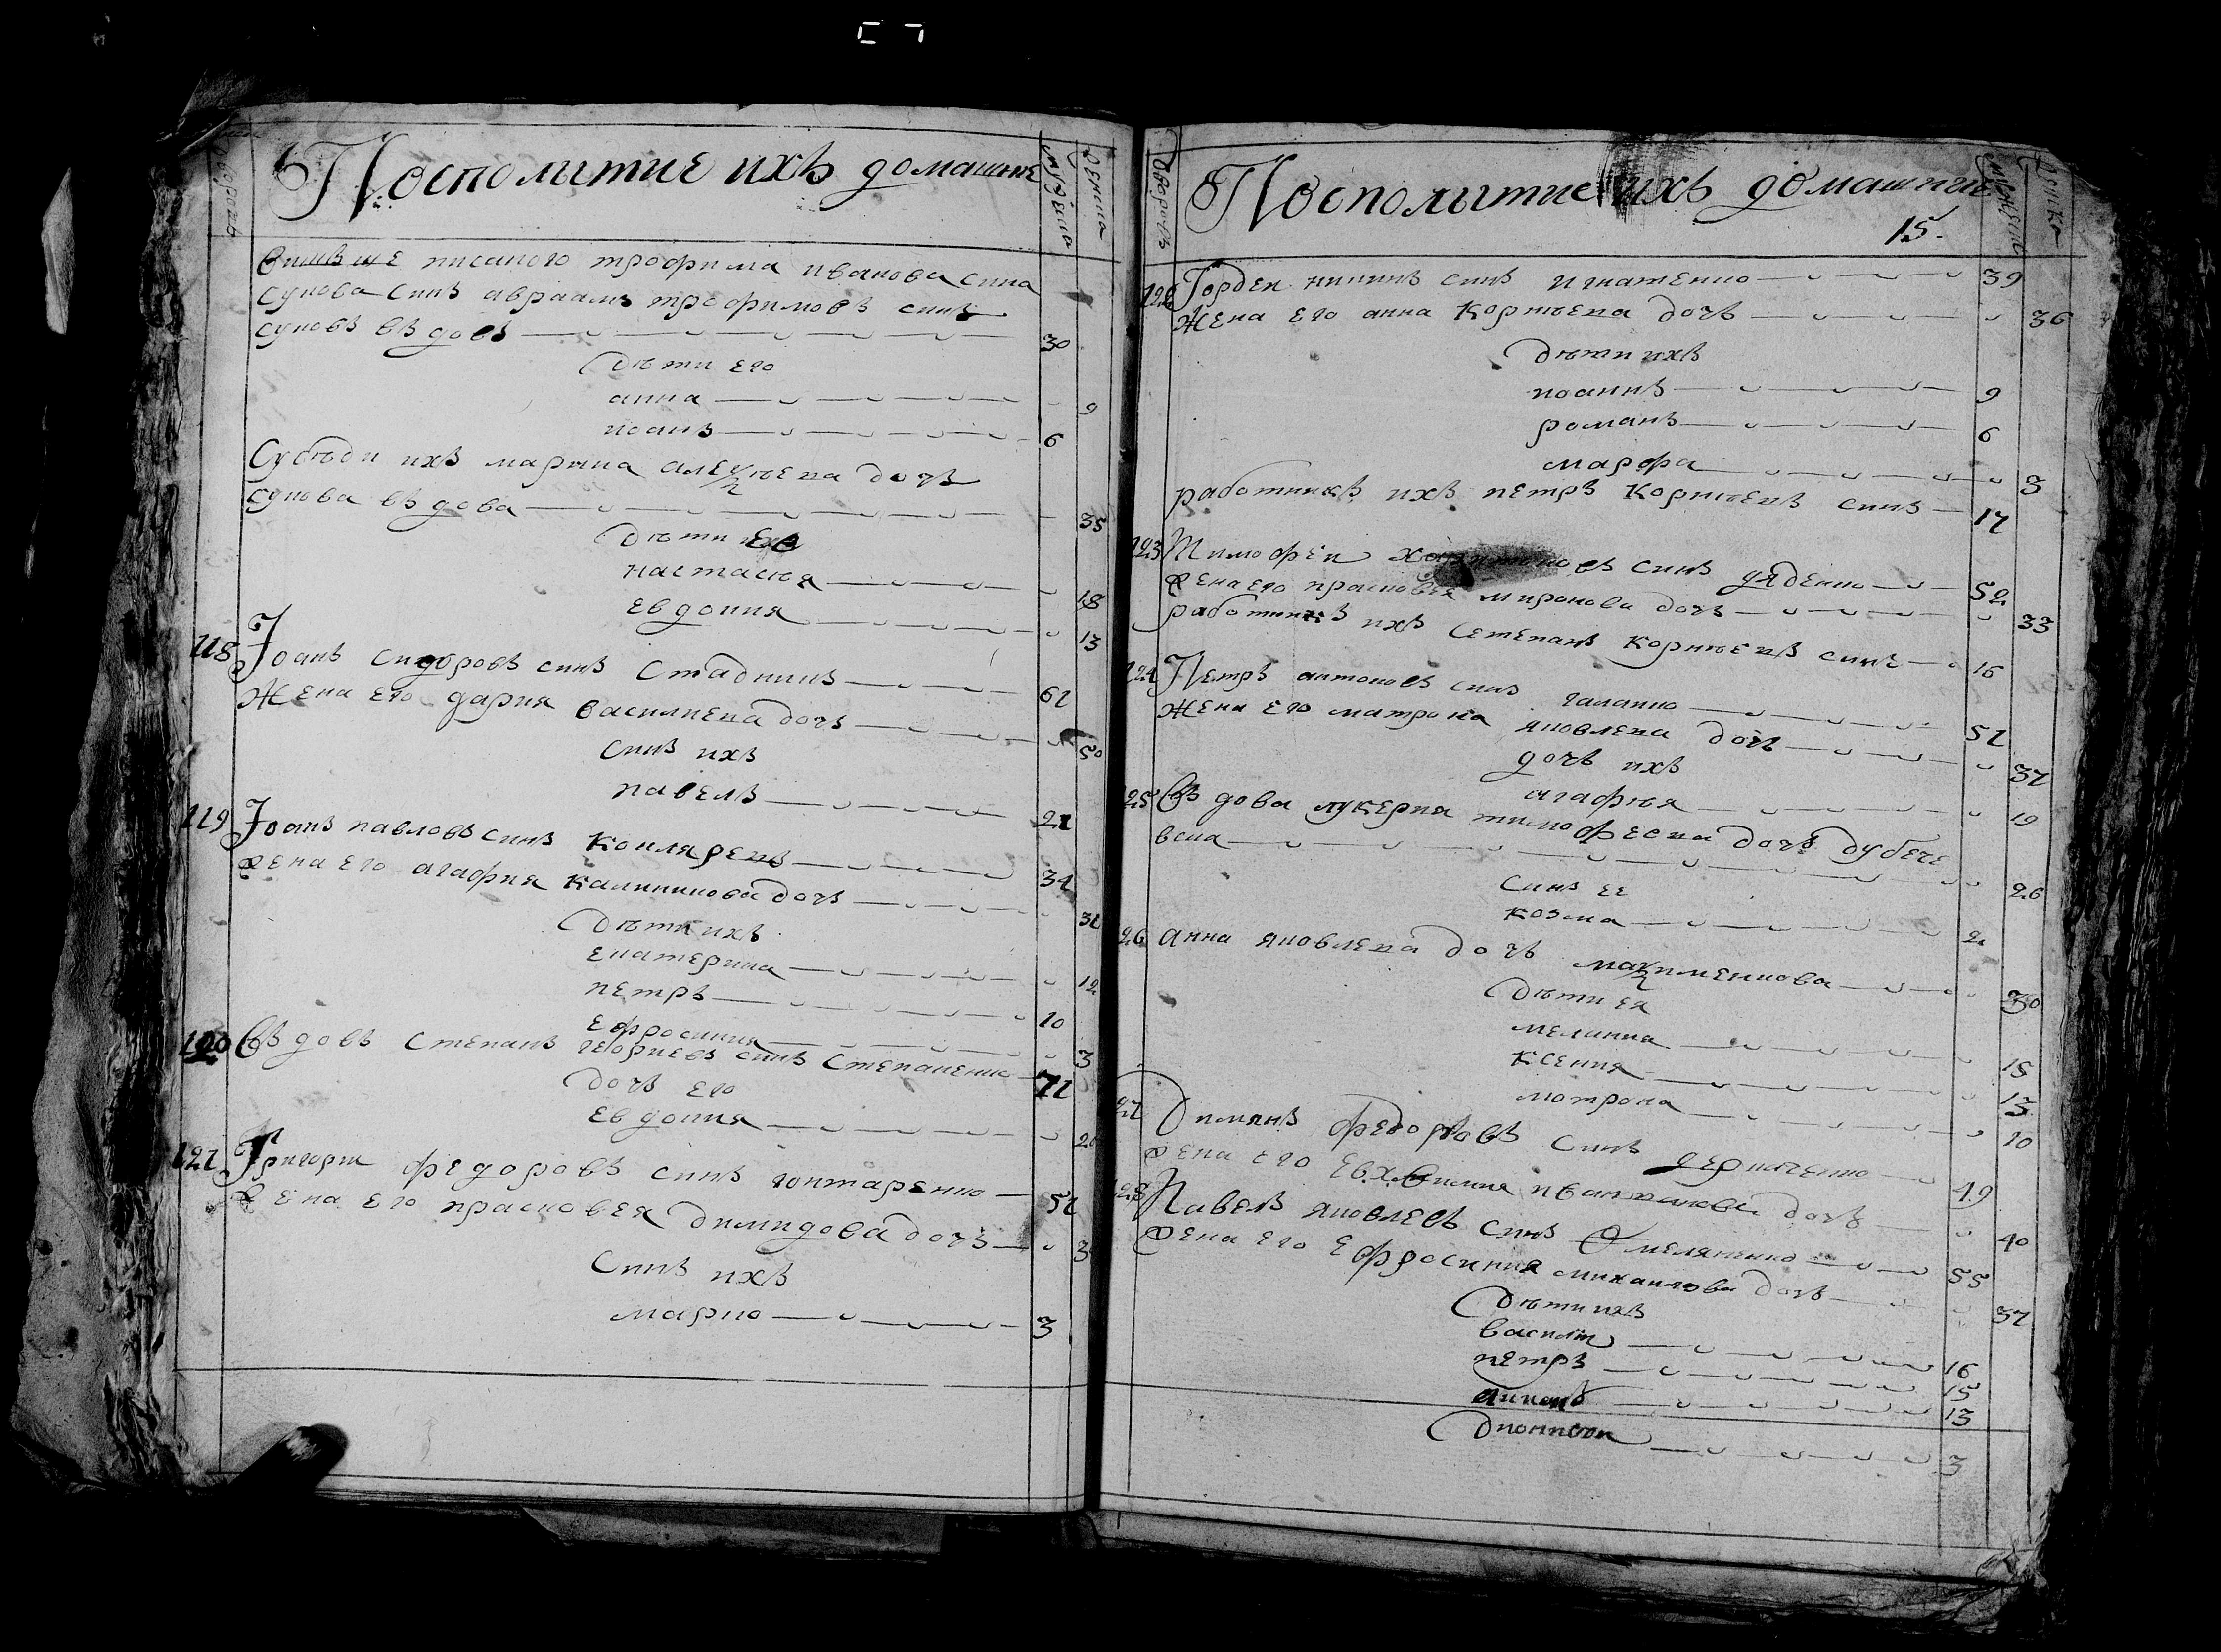 дворовъ
Посполитие ихъ домашние
мужеска
женска
вишъше писаного трофима иванова сина
сукова синъ авраамъ трофимовъ синъ
суковъ въдовъ 30
Дѣти его
анна 9
иоанъ 6
Сусѣди ихъ марина алексѣева дочъ
сукова въдова 35
Дѣти ее
настасѣя 18
евдокия 13
118 Иоанъ сидоровъ синъ Стадникъ 61
Жена его дария василиева дочъ 50
синъ ихъ
павелъ 21
119 Иоанъ павловъ синъ Коклярецъ 34
жена его агафия калиникова дочъ 31
Дѣти ихъ
екатерина 12
петръ 10
ефросиния 3
120 Въдовъ Степанъ георгиевъ синъ Степаненко 71
Дочъ его
евдокия
121 Григории федоровъ синъ гонтаренко 51
жена его прасковея Димидова дочъ
Синъ ихъ
марко 3
дворовъ
Посполитие ихъ домашние
мужеска
женска
15.
122 Гордеи никинъ синъ игнатенко 39
Жена его анна Корнѣева дочъ 36
Дѣти ихъ
иоаннъ 9
романъ 6
марфа 3
работникъ ихъ петръ Корнѣевъ синъ 17
123 Тимофеи синъ дяденко 52
жена его прасковея миронова дочъ 33
работникъ ихъ Сетепанъ Корнѣевъ синъ 16
124 Петръ антоновъ синъ галанко 51
Жена его матрона яковлева дочъ 37
дочъ ихъ
агафѣя 19
125 Въдова лукерия тимофеева дочъ Дубече
вска 26
Синъ ее
козма 2
126 анна яковлева дочъ максименкова 30
Дѣти ея
меланка 18
ксения 13
мотрона 10
127 Димянъ федоровъ синъ деркаченко 49
жена его дочъ 40
128 Павелъ яковлевъ синъ Омеляненко 55
жена его ефросиния михаилова дочъ 37
Дѣти ихъ
василии 16
петръ 15
13
Дионисии 3